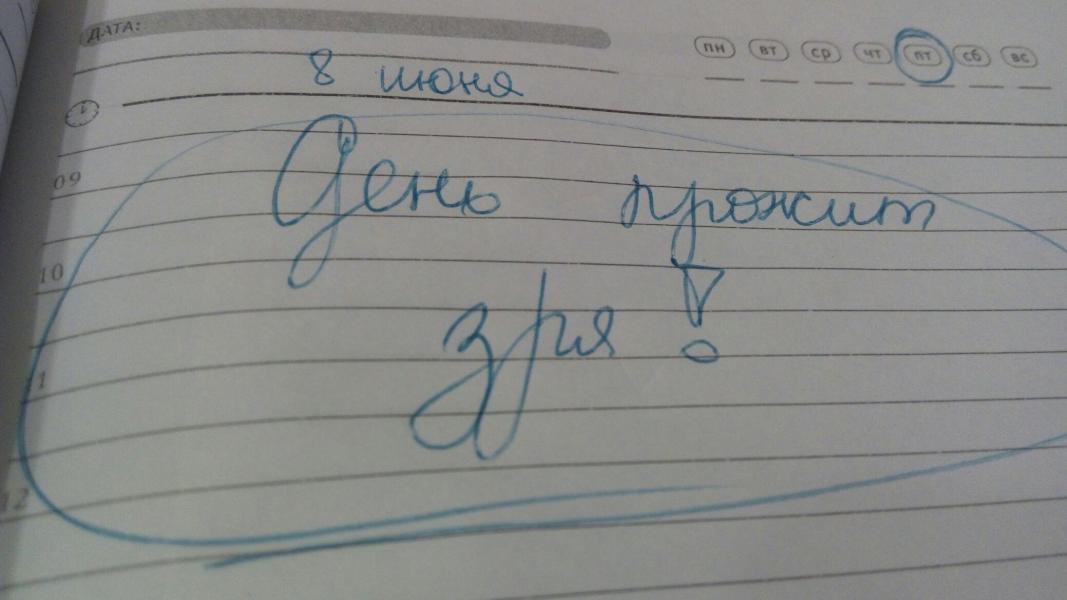 ДАТА:
пн вт ср чт пт сб вс
8 июня
День прожит
зря!
09
10
11
12